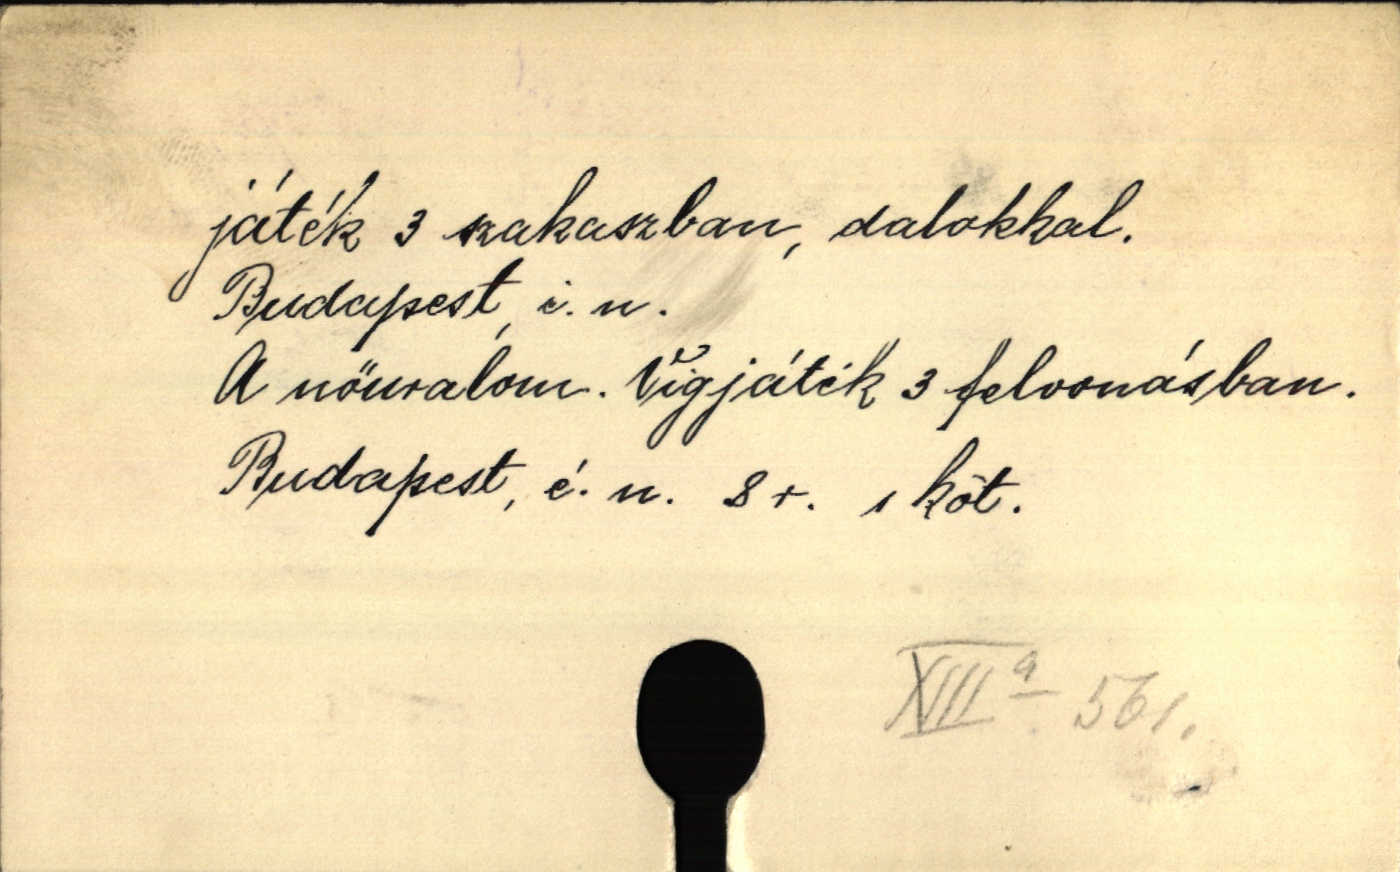 játék 3 szakaszban, dalokkal.
Budapest, é. n.
A nőuralom. Vígjáték 3 felvonásban.
Budapest, é. n. 8 r. 1 köt.
XIII a 561.